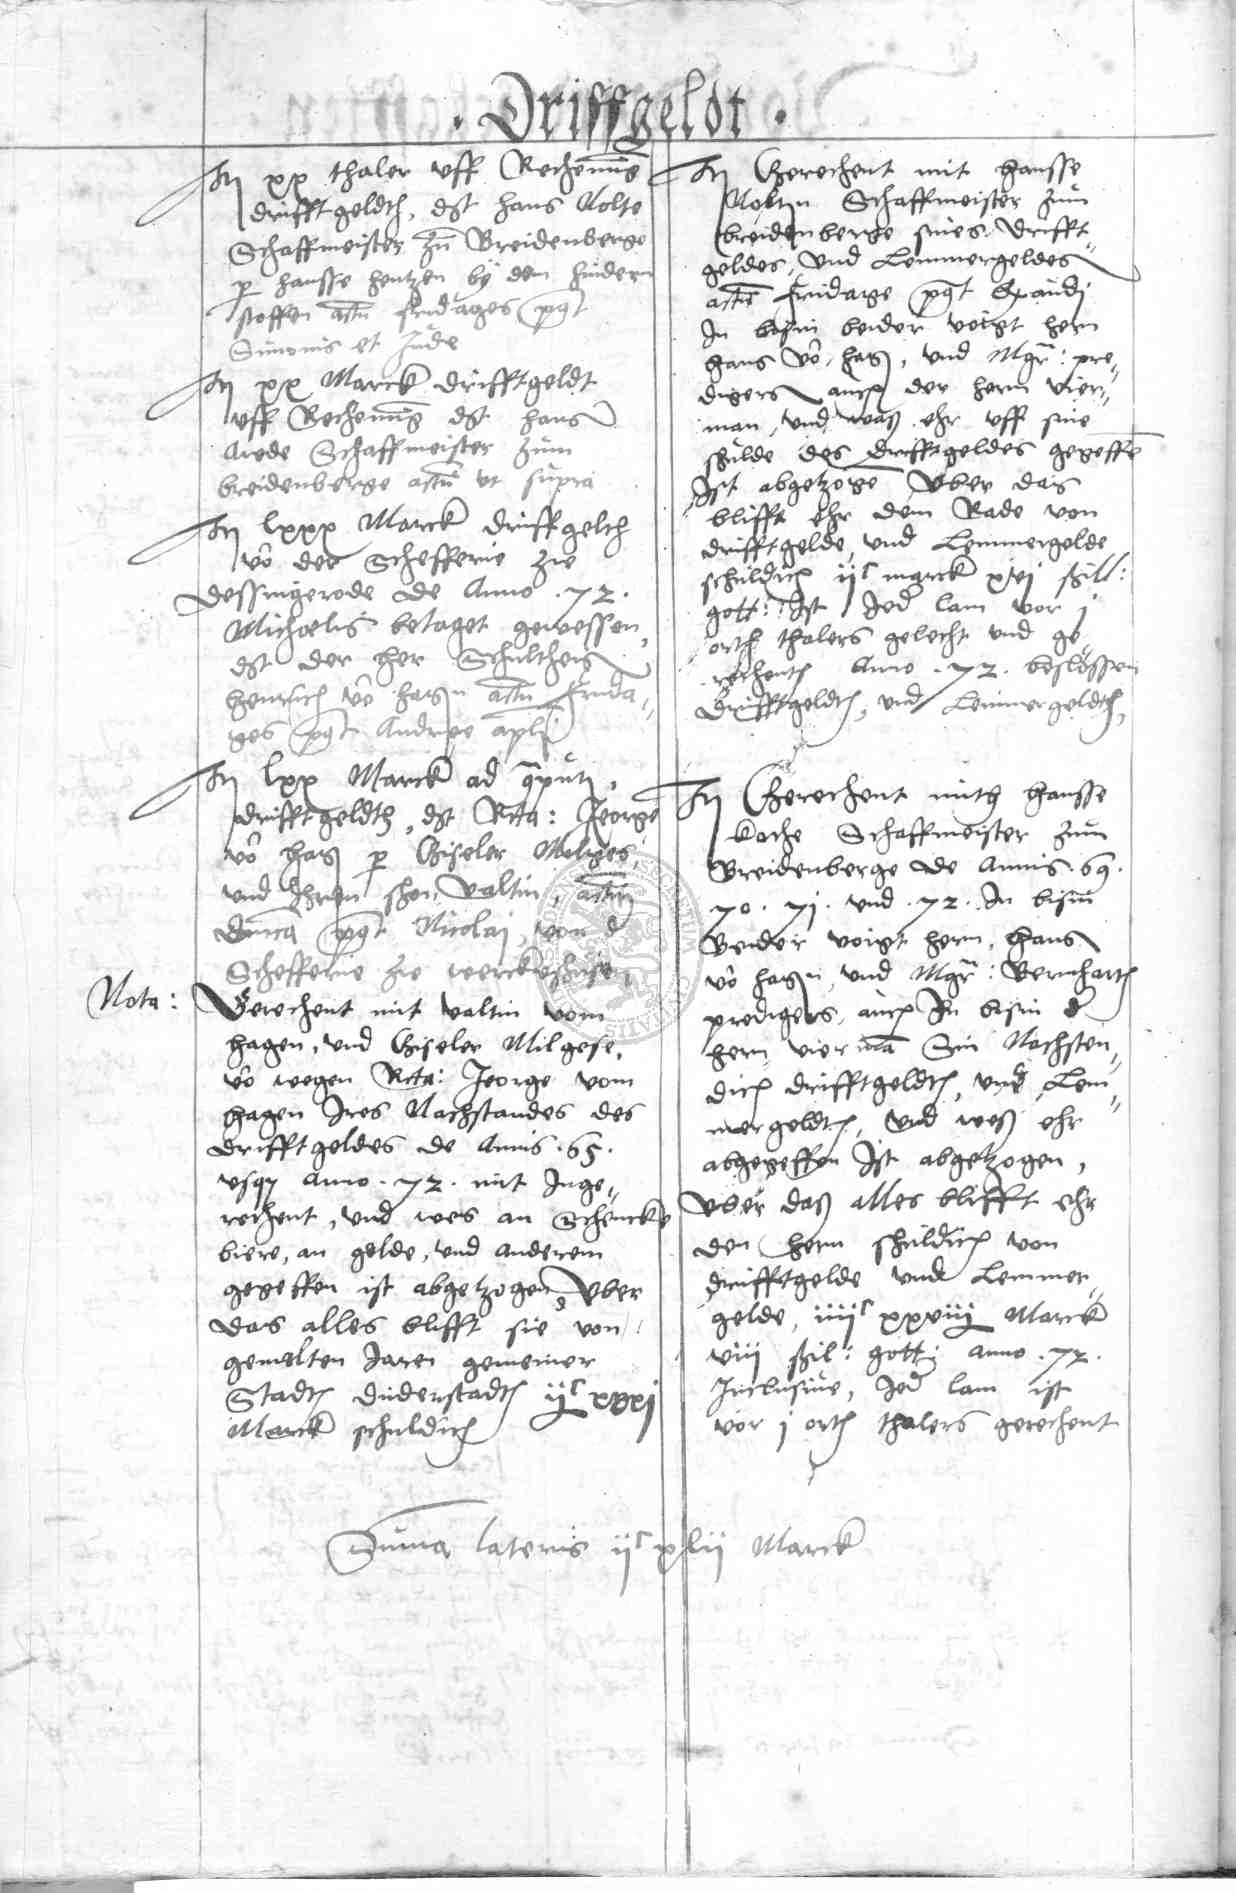 . Driffgeldt .
It xx thaler vff Rechenung
drifftgeldt, dt hans Nolte
Schaffmeister zu Breidenberge
p hansse hentzen by dem hindern
stoffen actu fridages pt
Simonis et Jude
It xx Marck drifftgeldt
vff Rechenung dt hans
Arede Schaffmeister zum
breidenberge actu vt supra
It lxxx Marck driffgelth
vo der Schefferie zu
Dessingerode de Anno . 72 .
Michaelis betaget gewessen,
dt der her Schulthens
henrich vo hagen actu frida-
ges pt Andree apli
It lxx Marck ad computum,
drifftgeldt, dt Rela: Jeorge
vo hagen p Giseler Milges,
vnd Ihren shon Valtin, actum
dnica pt Nicolai, von d
Schefferie zu werckeshusen
Nota:
Gerechent mit valtin vom
hagen, vnd Giseler Milgese,
vo wegen Rela: Jeorge vom
hagen Ires Nachstandes des
drifftgeldes de Annis . 65 .
vsq Anno . 72 . mit Inge-
rechent, vnd wes an Schencke
biere, an gelde, vnd anderem
gegeffen ist abgetzogen, Vber
das alles blifft sie von
gemelten Jaren gemeiner
Stadt Duderstadt ijc xxxj
Marck schuldich
It Gerechent mit hansse
Nolten Schaffmeister zum
breidenberge sines Drifft-
geldes, vnd Lemmergeldes
actu fridage pt Exaudi
In bisin beider voigt hern
hans vo hagen, vnd Mgr: pre-
digers auch der hern vier-
man, vnd waß ehr vff sine
schulde des drifftgeldes gegeffen
Ist abgetzogen Vber das
blifft ehr dem Rade von
drifftgelde, vnd Lemmergelde
schuldich ijc marck xvj schill:
gott: Ist Jeder lam vor j
orth thalers gelecht vnd ge
rechent Anno . 72 . beslossen
Drifftgeldt, vnd Lemmergeldt,
It Gerechent mith hansse
koche Schaffmeister zum
Breidenberge de Annis . 69 .
70 . 71 . vnd . 72 . In bisin
Beider voigt hern, hans
vo hagen, vnd Mgr: Bernhart
predigers, auch In bisin d
hern vierma Sin Nachsten-
dich drifftgeldt, vnd Lem-
mergeldt, Vnd weß ehr
abgegeffen Ist abgetzogen,
Vber daß alles blifft ehr
den hern schuldich von
drifftgelde vnd Lemmer-
gelde, iiijc xxviij Marck
viij schil: gott: Anno . 72 .
Inclusiue, Jeder lam ist
vor j orth thalers gerechent
Suma lateris ijc xlij Marck